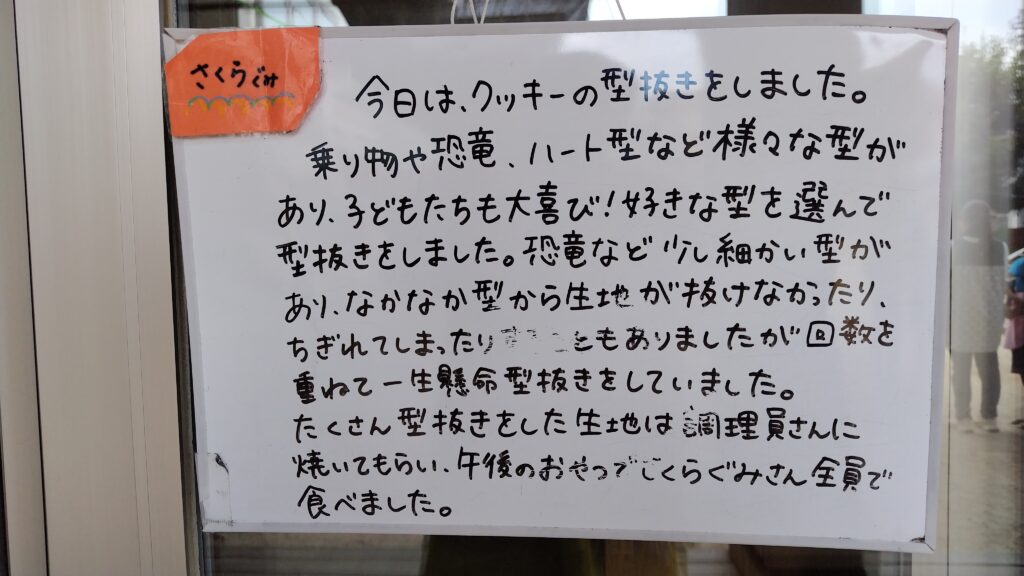 さくらぐみ
今日は、クッキーの型抜きをしました。
乗り物や恐竜、ハート型など様々な型が
あり、子どもたちも大喜び!好きな型を選んで
型抜きをしました。恐竜など少し細かい型が
あり、なかなか型から生地が抜けなかったり、
ちぎれてしまったり ともありましたが回数を
重ねて一生懸命型抜きをしていました。
たくさん型抜きをした生地は調理員さんに
焼いてもらい、午後のおやつでさくらぐみさん全員で
食べました。